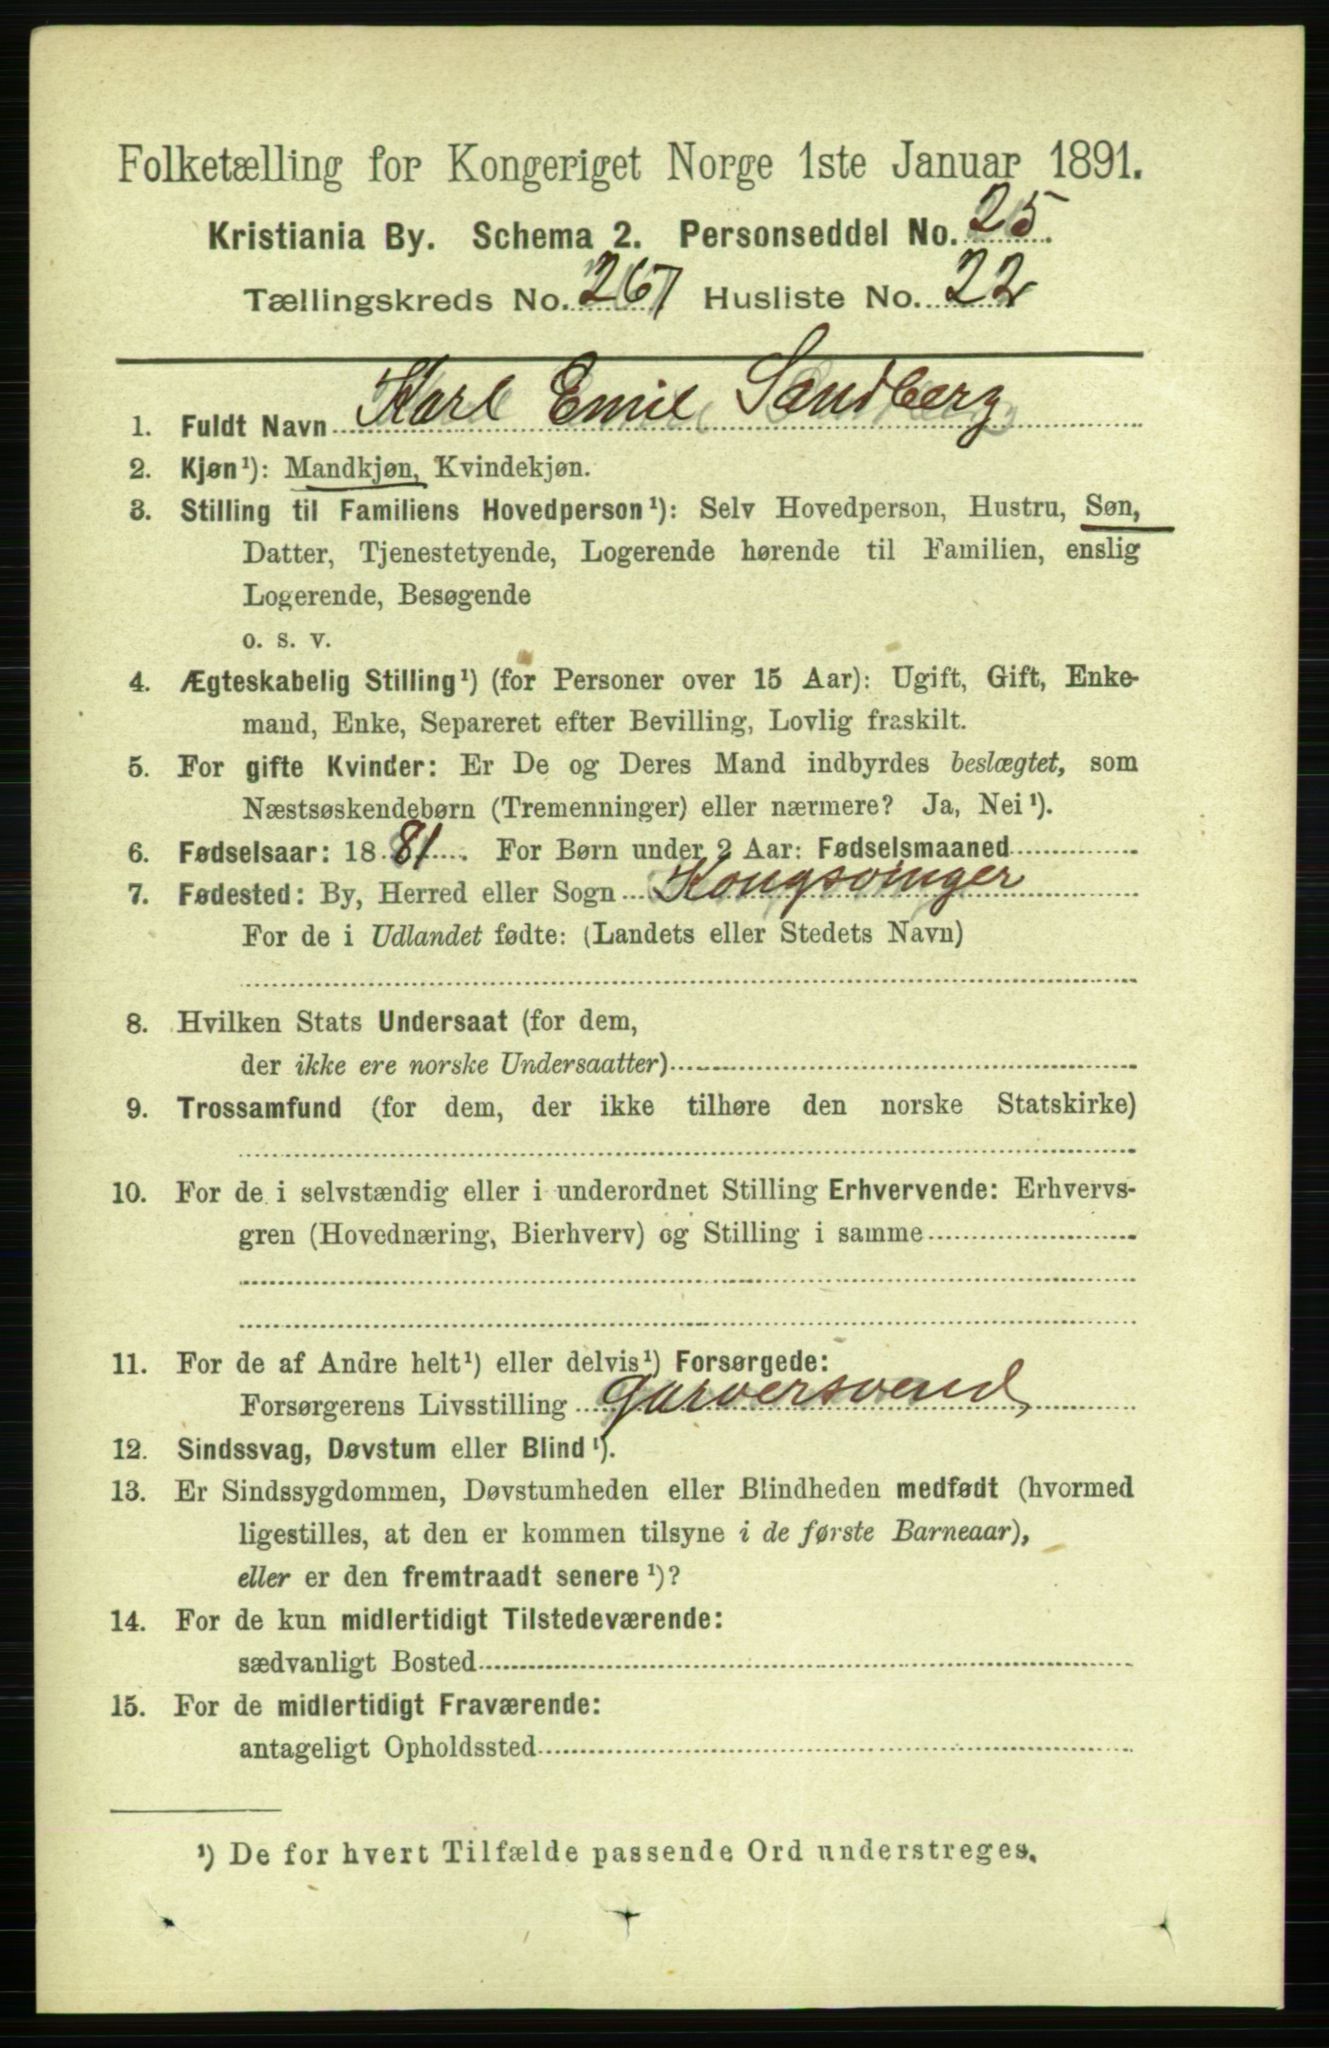 Folketælling for Kongeriget Norge 1ste Januar 1891.
Kristiania By. Schema 2. Personseddel No. 25.
Tællingskreds No. 267 Husliste No. 22
1. Fuldt Navn Karl Emil Sandberg
2. Kjøn¹): Mandkjøn, Kvindekjøn.
3. Stilling til Familiens Hovedperson¹): Selv Hovedperson, Hustru, Søn,
Datter, Tjenestetyende, Logerende hørende til Familien, enslig
Logerende, Besøgende
o. s. v.
4. Ægteskabelig Stilling¹) (for Personer over 15 Aar): Ugift, Gift, Enke-
mand, Enke, Separeret efter Bevilling, Lovlig fraskilt.
5. For gifte Kvinder: Er De og Deres Mand indbyrdes beslægtet, som
Næstsøskendebørn (Tremenninger) eller nærmere? Ja, Nei¹).
6. Fødselsaar: 1881. For Børn under 2 Aar: Fødselsmaaned
7. Fødested: By, Herred eller Sogn Kongsvinger
For de i Udlandet fødte: (Landets eller Stedets Navn)
8. Hvilken Stats Undersaat (for dem,
der ikke ere norske Undersaatter)
9. Trossamfund (for dem, der ikke tilhøre den norske Statskirke)
10. For de i selvstændig eller i underordnet Stilling Erhvervende: Erhvervs-
gren (Hovednæring, Bierhverv) og Stilling i samme
11. For de af Andre helt¹) eller delvis¹) Forsørgede:
Forsørgerens Livsstilling Garversvend
12. Sindssvag, Døvstum eller Blind¹).
13. Er Sindssygdommen, Døvstumheden eller Blindheden medfødt (hvormed
ligestilles, at den er kommen tilsyne i de første Barneaar),
eller er den fremtraadt senere¹)?
14. For de kun midlertidigt Tilstedeværende:
sædvanligt Bosted
15. For de midlertidigt Fraværende:
antageligt Opholdssted
¹) De for hvert Tilfælde passende Ord understreges.